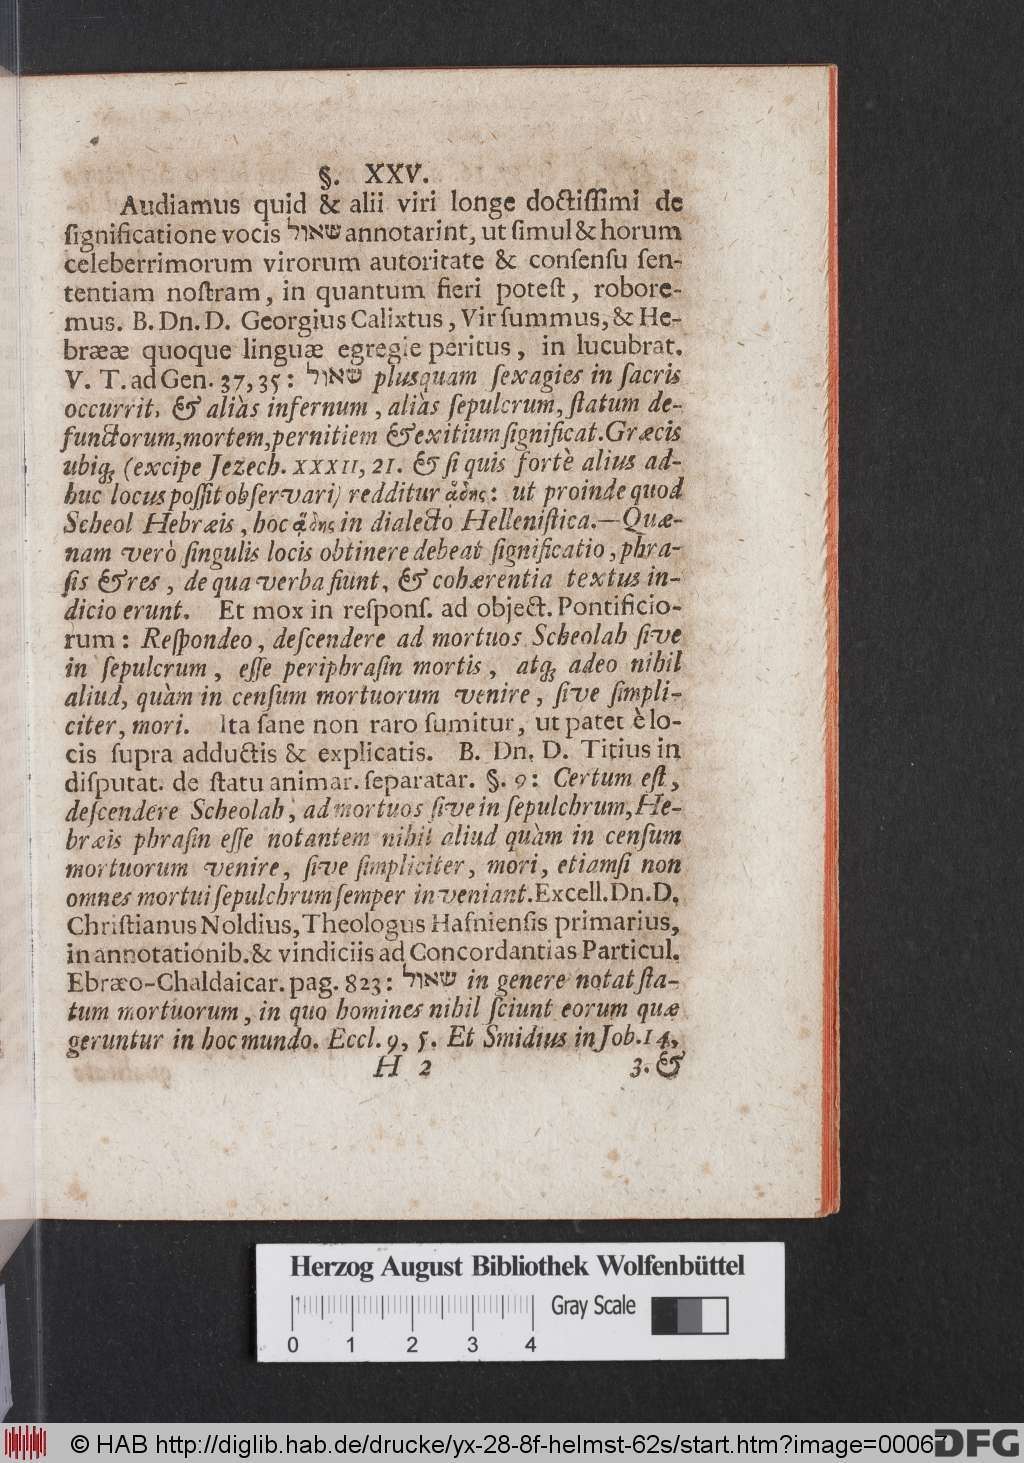 §. XXV.
Audiamus quid & alii viri longe doctiſſimi de
ſignificatione vocis שאול annotarint, ut ſimul & horum
celeberrimorum virorum autoritate & conſenſu ſen-
tentiam noſtram, in quantum fieri poteſt, robore-
mus. B. Dn. D. Georgius Calixtus, Vir ſummus, & He-
brææ quoque linguæ egregie peritus, in lucubrat.
V. T. ad Gen. 37, 35: שאול plusquam ſexagies in ſacris
occurrit, & aliàs infernum, aliàs ſepulcrum, ſtatum de-
functorum, mortem, pernitiem & exitium ſignificat. Græcis
ubiq; (excipe Jezech. XXXII, 21. & ſi quis fortè alius ad-
huc locus poſſit obſervari) redditur ᾅδης: ut proinde quod
Scheol Hebræis, hoc ᾅδης in dialecto Helleniſtica.—Quæ-
nam verò ſingulis locis obtinere debeat ſignificatio, phra-
ſis & res, de qua verba fiunt, & cohærentia textus in-
dicio erunt. Et mox in reſponſ. ad object. Pontificio-
rum: Reſpondeo, deſcendere ad mortuos Scheolah ſive
in ſepulcrum, eſſe periphraſin mortis, atq; adeo nihil
aliud, quàm in cenſum mortuorum venire, ſive ſimpli-
citer, mori. Ita ſane non raro ſumitur, ut patet è lo-
cis ſupra adductis & explicatis. B. Dn. D. Titius in
diſputat. de ſtatu animar. ſeparatar. §. 9: Certum eſt,
deſcendere Scheolah, ad mortuos ſive in ſepulchrum, He-
bræis phraſin eſſe notantem nihil aliud quàm in cenſum
mortuorum venire, ſive ſimpliciter, mori, etiamſi non
omnes mortui ſepulchrum ſemper inveniant. Excell. Dn. D.
Chriſtianus Noldius, Theologus Hafnienſis primarius,
in annotationib. & vindiciis ad Concordantias Particul.
Ebræo-Chaldaicar. pag. 823: שאול in genere notat ſta-
tum mortuorum, in quo homines nihil ſciunt eorum quæ
geruntur in hoc mundo. Eccl. 9, 5. Et Smidius in Job. 14,
H 2 3. &
Herzog August Bibliothek Wolfenbüttel
Gray Scale
0 1 2 3 4
© HAB http://diglib.hab.de/drucke/yx-28-8f-helmst-62s/start.htm?image=00067
DFG